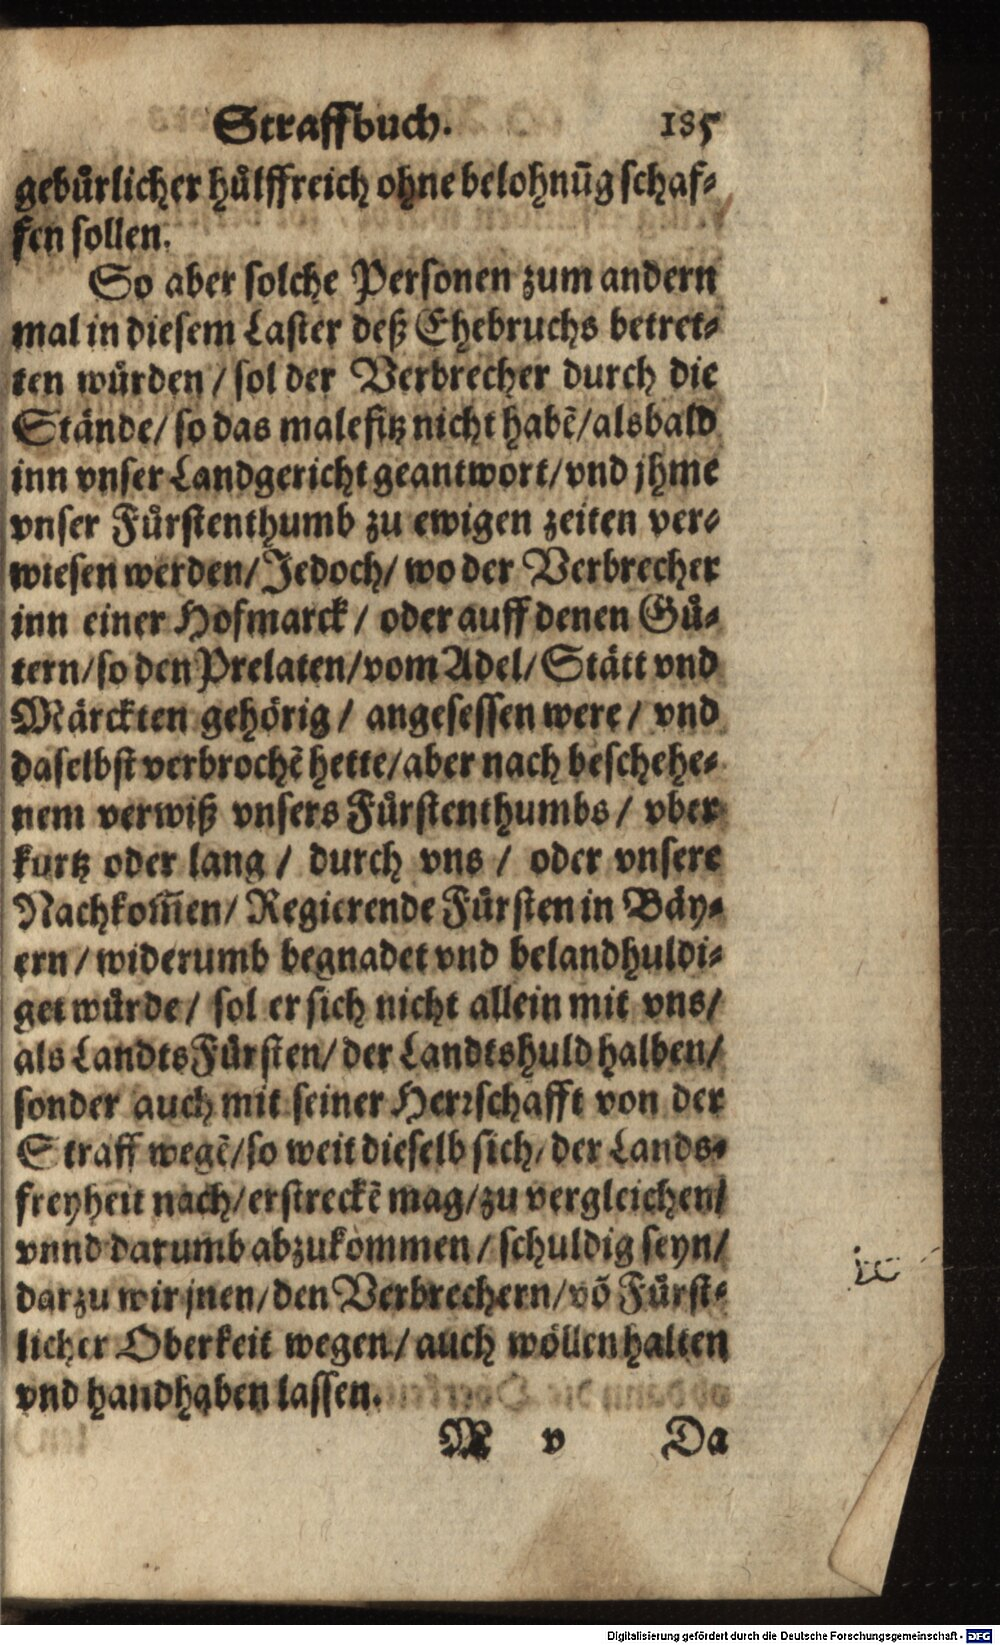 Straffbuch. 185
gebuͤrlicher huͤlffreich ohne belohnūg schaf-
fen sollen.
So aber solche Personen zum andern
mal in diesem Laster deß Ehebruchs betret-
ten wuͤrden / sol der Verbrecher durch die
Stände / so das malefitz nicht habē / alsbald
inn vnser Landgericht geantwort / vnd jhme
vnser Fuͤrstenthumb zu ewigen zeiten ver-
wiesen werden / Jedoch / wo der Verbrecher
inn einer Hofmarck / oder auff denen Guͤ-
tern / so den Prelaten / vom Adel / Stätt vnd
Märckten gehörig / angesessen were / vnd
daselbst verbrochē hette / aber nach beschehe-
nem verwiß vnsers Fuͤrstenthumbs / vber
kurtz oder lang / durch vns / oder vnsere
Nachkom̄en / Regierende Fuͤrsten in Bäy-
ern / widerumb begnadet vnd belandhuldi-
get wuͤrde / sol er sich nicht allein mit vns /
als LandtsFuͤrsten / der Landtshuld halben /
sonder auch mit seiner Herrschafft von der
Straff wegē / so weit dieselb sich / der Lands-
freyheit nach / erstreckē mag / zu vergleichen /
vnnd darumb abzukommen / schuldig seyn /
darzu wir jnen / den Verbrechern / vō Fuͤrst-
licher Oberkeit wegen / auch wöllen halten
vnd handhaben lassen.
M v Da
Digitalisierung gefördert durch die Deutsche Forschungsgemeinschaft - DFG